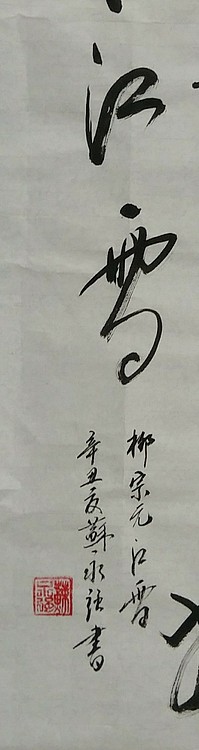 江雪
柳宗元江雪
辛丑夏蘇永強書